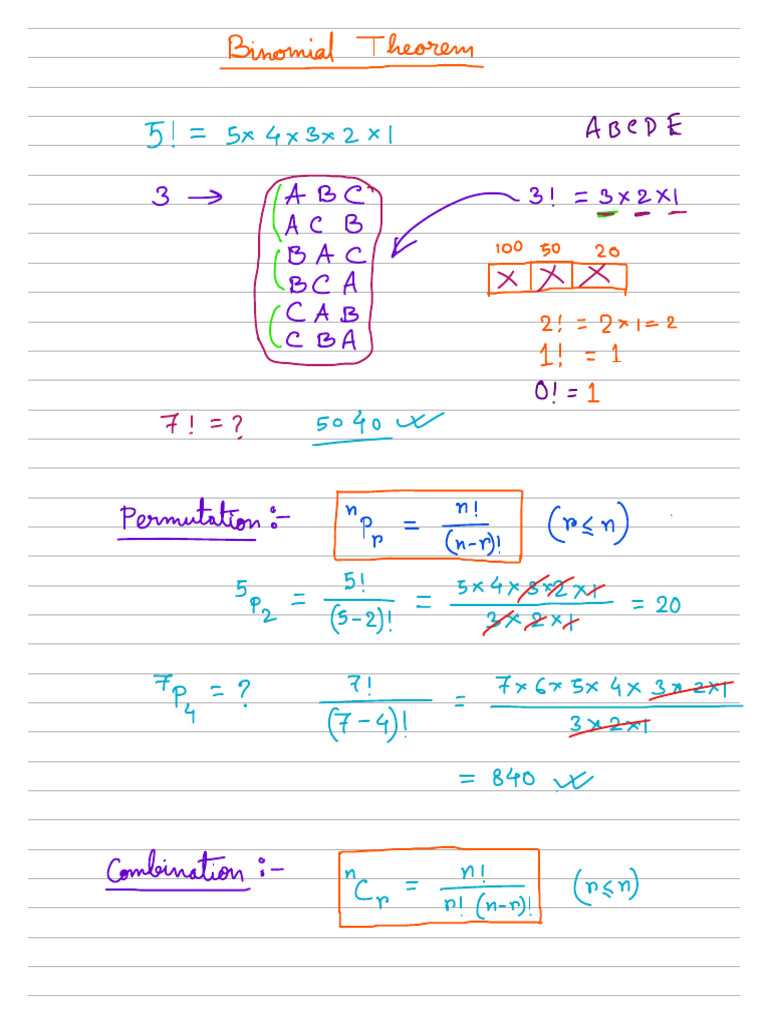 Binomial Theorem
5! = 5×4×3×2×1
A B C D E
3 → A B C
A C B
B A C
B C A
C A B
C B A
3! = 3×2×1
100 50 20
X X X
2! = 2×1=2
1! = 1
0! = 1
7! = ? 5040 ✓
Permutation :- ⁿPᵣ = n!/(n-r)! (r≤n)
⁵P₂ = 5!/(5-2)! = 5×4×3×2×1/3×2×1 = 20
⁷P₄ = ? 7!/(7-4)! = 7×6×5×4×3×2×1/3×2×1
= 840 ✓
Combination :- ⁿCᵣ = n!/r!(n-r)! (r≤n)